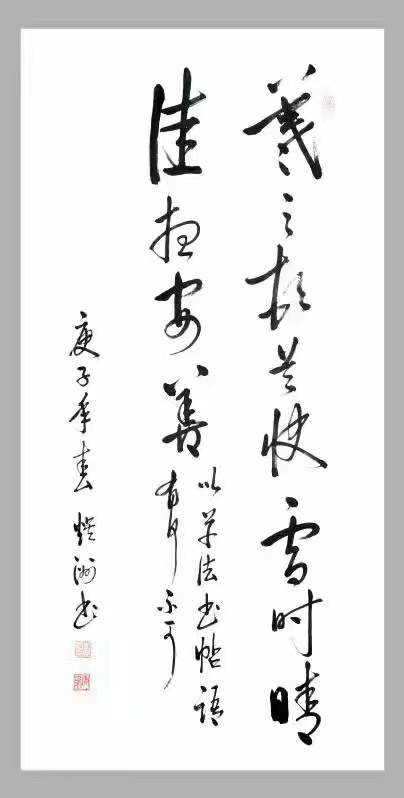 羲之頓首快雪时晴
佳想安善
以草法书帖语
有何不可
庚子季春书